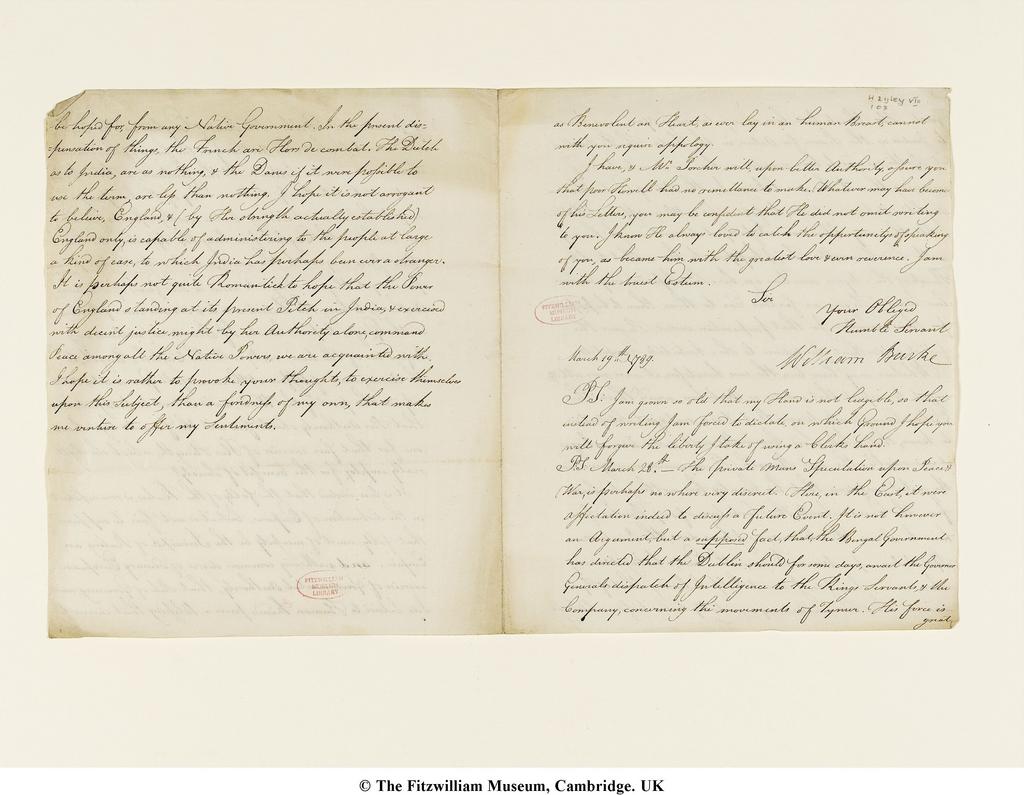 be hoped for, from any Native Government. In the present dis=
=pensation of things, the French are Hors de combat. The Dutch
as to India, are as nothing, & the Danes if it were possible to
use the term, are less than nothing. I hope it is not arrogant
to believe, England, & (by Her strength actually established)
England only, is capable of administering to the people at large
a kind of ease, to which India has perhaps been ever a stranger.
It is perhaps not quite Romantick to hope that the Power
of England standing at its present Pitch in India, & exercised
with decent justice, might by her Authority alone, command
Peace among all the Native Powers, we are acquainted with.
I hope it is rather to provoke your thoughts, to exercise themselves
upon this Subject, than a fondness of my own, that makes
me venture to offer my Sentiments.
FITZWILLIAM
MUSEUM
LIBRARY
Hayley VII
103
as Benevolent an Heart, as ever lay in an human Breast, cannot
with you require appology.
I have, & Mr. Forcher will, upon better Authority, assure you
that poor Howell had no remittance to make. Whatever may have become
of his Letters, you may be confident that He did not omit writing
to you. I know He always loved to catch the opportunitys of speaking
of you, as became him with the greatest love & even reverence. I am
with the truest Esteem.
Sir
Your Obliged
Humble Servant
FITZWILLIAM
MUSEUM
LIBRARY
March 19th. 1789.
William Burke
PS: I am grown so old that my Hand is not leegible, so that
instead of writing I am forced to dictate, on which Ground I hope you
will forgive the liberty I take of using a Clerks hand.
PS. March 28th — The private Mans Speculation upon Peace &
War, is perhaps no where very discreet. Here, in the East, it were
affectation indeed to discuss a Future Event. It is not however
an Argument, but a supposed fact, that the Bengal Government
has directed that the Dublin should for some days, await the Governor
Generals dispatch of Intelligence to the Kings Servants, & the
Company, concerning the movements of Tynur. His force is
great
© The Fitzwilliam Museum, Cambridge. UK